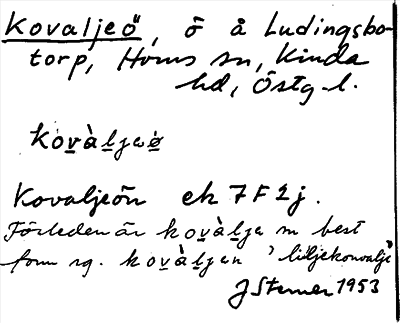 Kovaljeö, ö å Ludingsbo-
torp, Horns sn, Kinda
hd, Östg-l.
kovàljeø
Kovaljeön ek 7F2j.
Förleden är kovàlje m best
form sg. kovàljen 'liljekonvalje'
J Sterner 1953